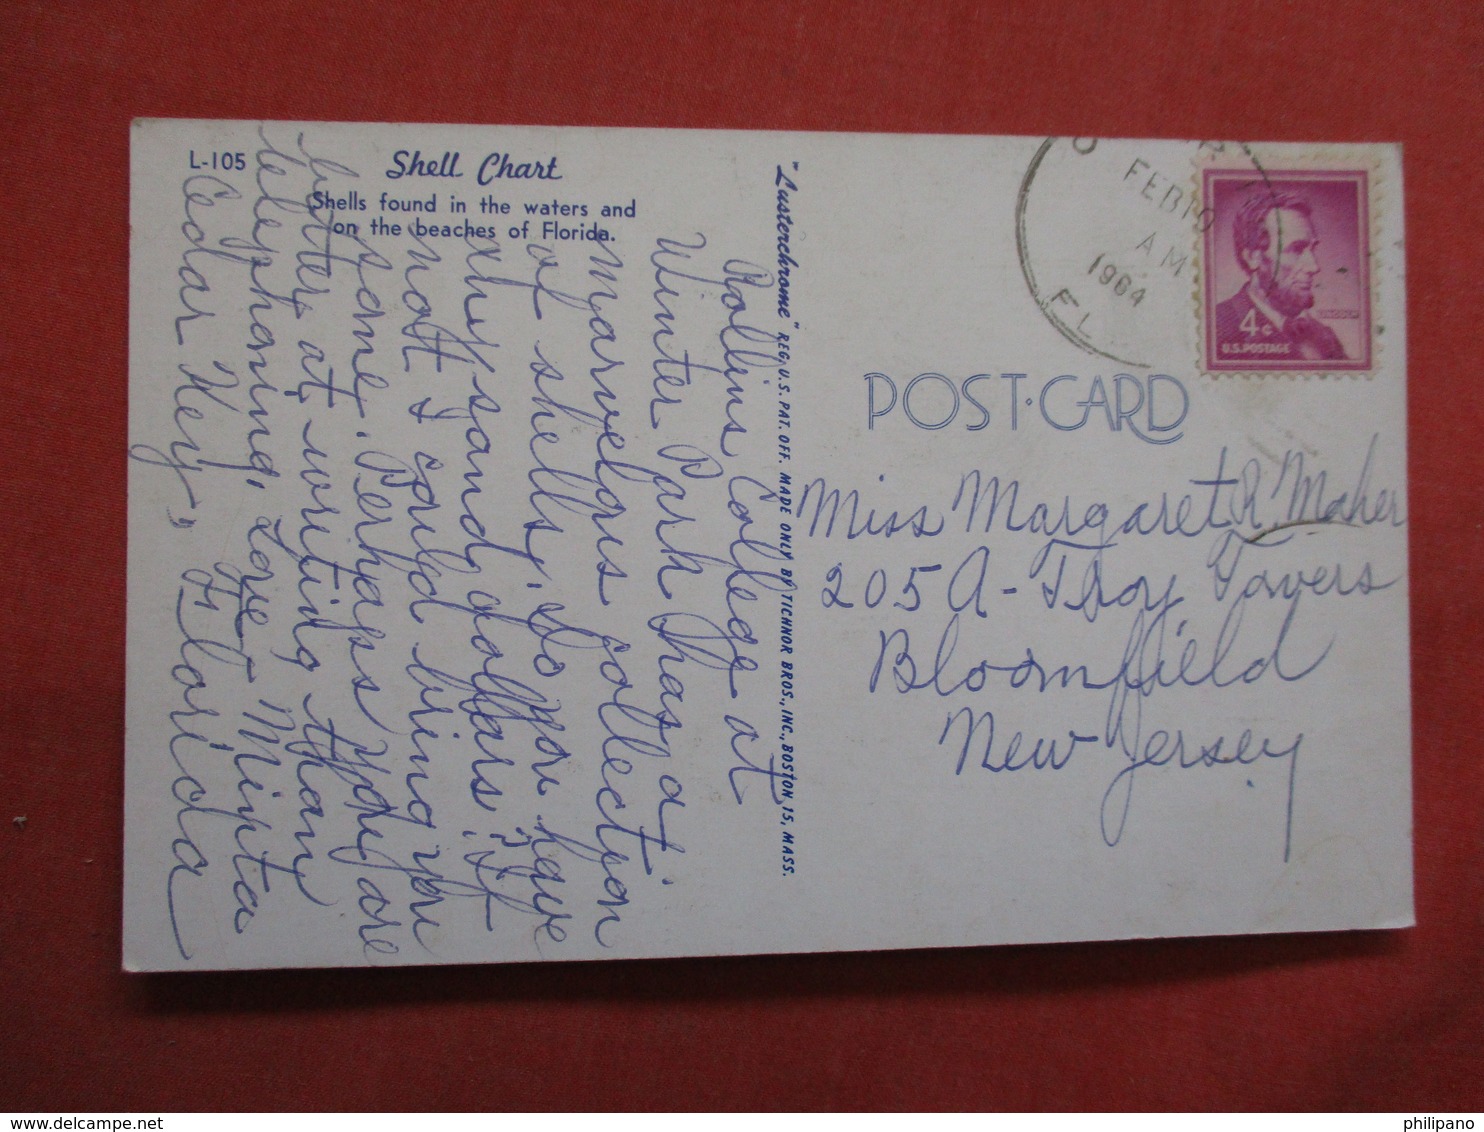 L-105
Shell Chart
Shells found in the waters and
on the beaches of Florida.
Rollins College at
Winter Park has a
marvelous collection
of shells. Do you have
any sand dollars? If
not I could bring you
some. Perhaps you are
better at writing than
telephoning. Love Minta
Cedar Key, Florida
"Lusterchrome" REG. U.S. PAT. OFF. MADE ONLY BY TICHNOR BROS., INC., BOSTON 15, MASS.
FEB 10
AM
1964
FL
LINCOLN
4¢
U.S. POSTAGE
POST-CARD
Miss Margaret R. Maher
205 A- Troy Towers
Bloomfield
New Jersey
philipano